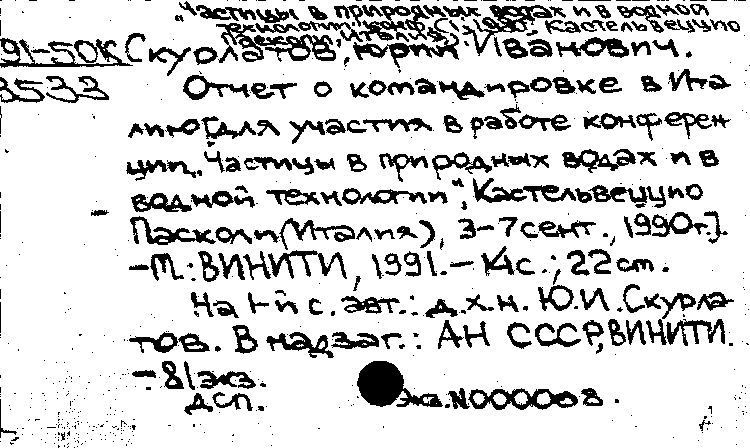 „Частицы в природных водах и в водной
технологии", конф. (; 1990; Кастельвеццуно
Пасколи, Италия)
91-50К Скурлатов, Юрий Иванович.
3533 Отчет о командировке в Ита
лию [для участия в работе конферен
ции „Частицы в природных водах и в
водной технологии", Кастельвеццуно
Пасколи (Италия), 3-7 сент., 1990г.].
-М.: ВИНИТИ, 1991.-14с.; 22 cm.
На 1-й с. авт.: д.х.н. Ю.И. Скурла
тов. В надзаг.: АН СССР, ВИНИТИ.
- 81 экз.
ДСП. Экз.N000008.